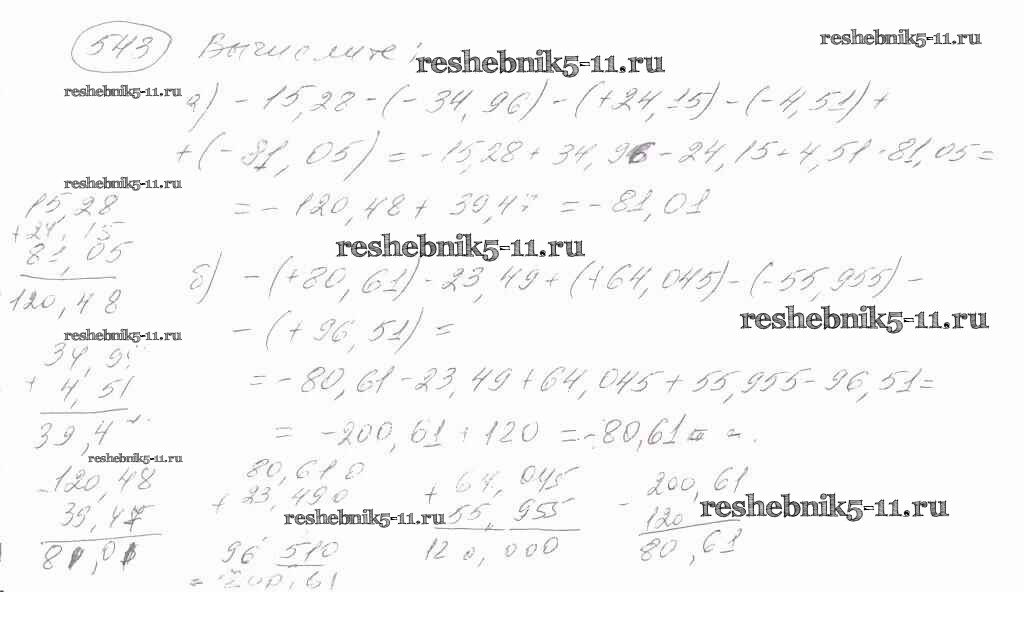 543 Вычислите:
reshebnik5-11.ru
reshebnik5-11.ru
reshebnik5-11.ru
а) - 15,28 - (- 34,96) - (+24,15) - (-4,51) +
+ (- 81,05) = - 15,28 + 34,96 - 24,15 + 4,51 - 81,05 =
reshebnik5-11.ru
= - 120,48 + 39,47 = - 81,01
15,28
+ 24,15
81,05
120,48
reshebnik5-11.ru
б) - (+80,61) - 23,49 + (+64,045) - (-55,955) -
- (+ 96,51) =
reshebnik5-11.ru
reshebnik5-11.ru
= - 80,61 - 23,49 + 64,045 + 55,955 - 96,51 =
= - 200,61 + 120 = - 80,61
34,9
+ 4,51
39,4
reshebnik5-11.ru
- 120,48
39,47
81,01
80,610
+ 23,490
reshebnik5-11.ru
96 510
= 200,61
+ 64,045
55,955
120,000
- 200,61
120
80,61
reshebnik5-11.ru